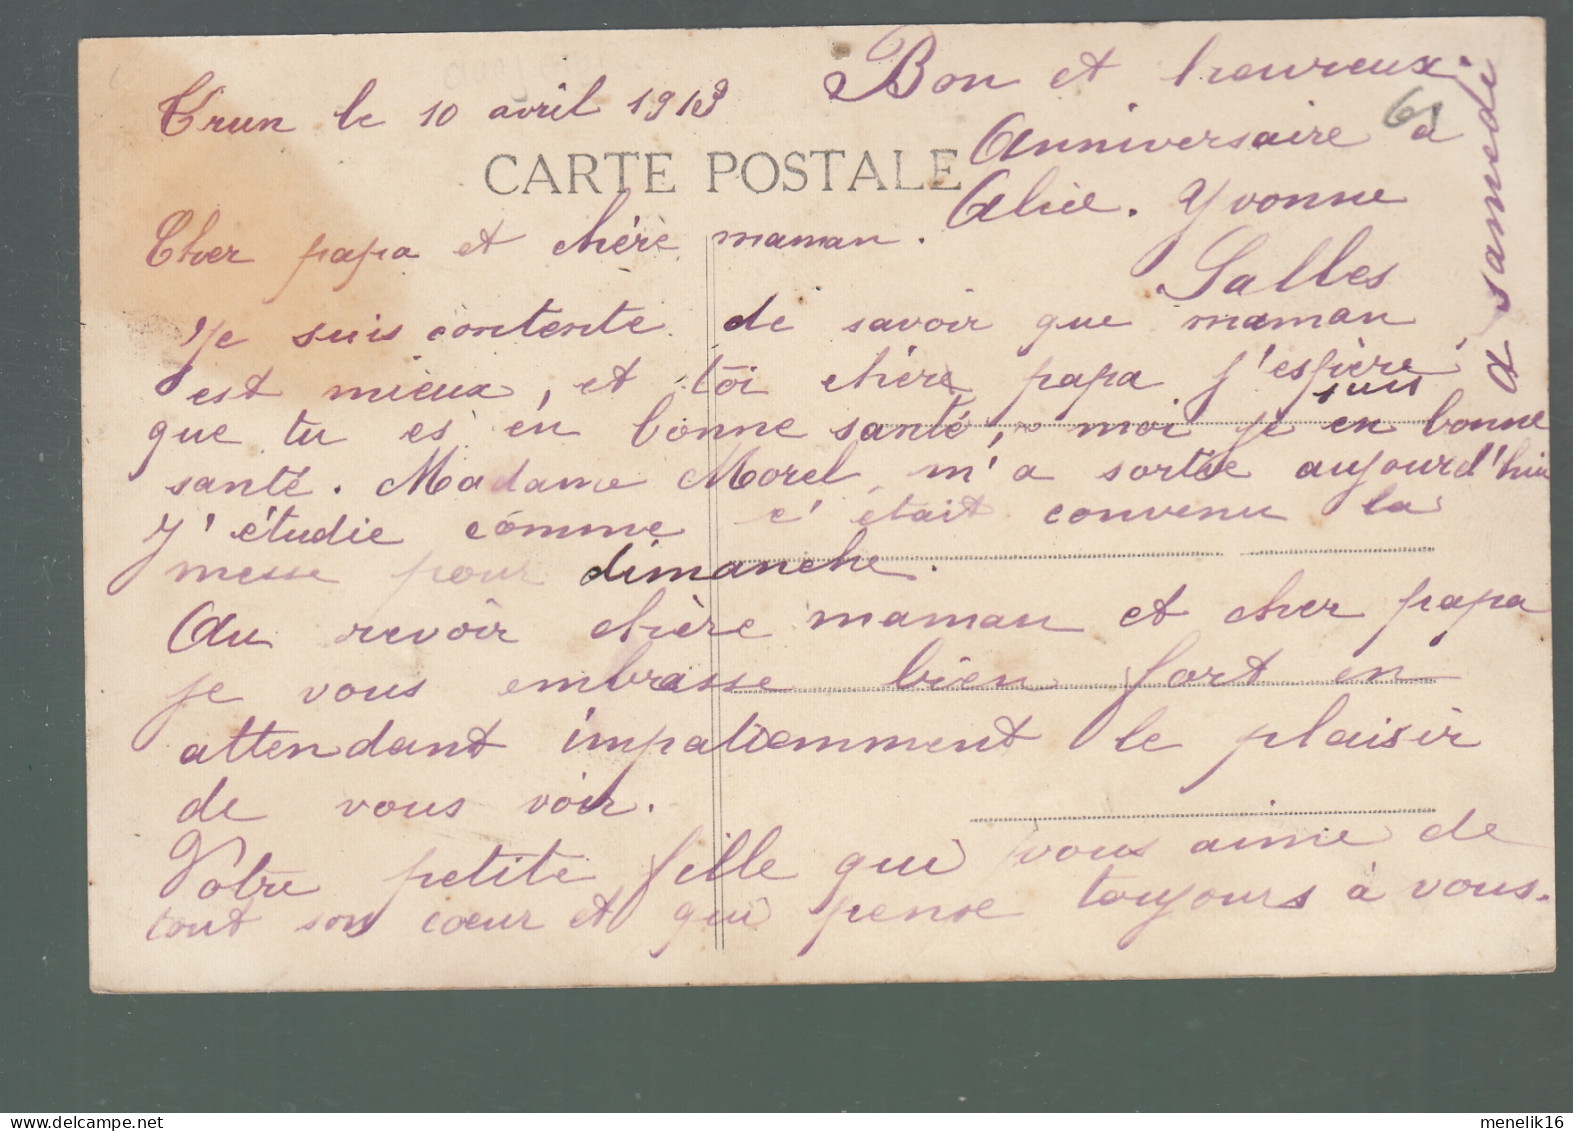 Trun le 10 avril 1913
Bon et heureux
Anniversaire a
Alice. Yvonne
Salles
a samedi
61
CARTE POSTALE
Cher papa et chère maman.
Je suis contente de savoir que maman
est mieux, et toi chère papa j'espère
que tu es en bonne santé, moi je suis en bonne
santé. Madame Morel m'a sortie aujourd'hui
J'étudie comme c'était convenu la
messe pour dimanche.
Au revoir chère maman et cher papa
je vous embrasse bien fort en
attendant impatiemment le plaisir
de vous voir.
Votre petite fille qui vous aime de
tout son cœur et qui pense toujours à vous.
www.delcampe.net
menelik16